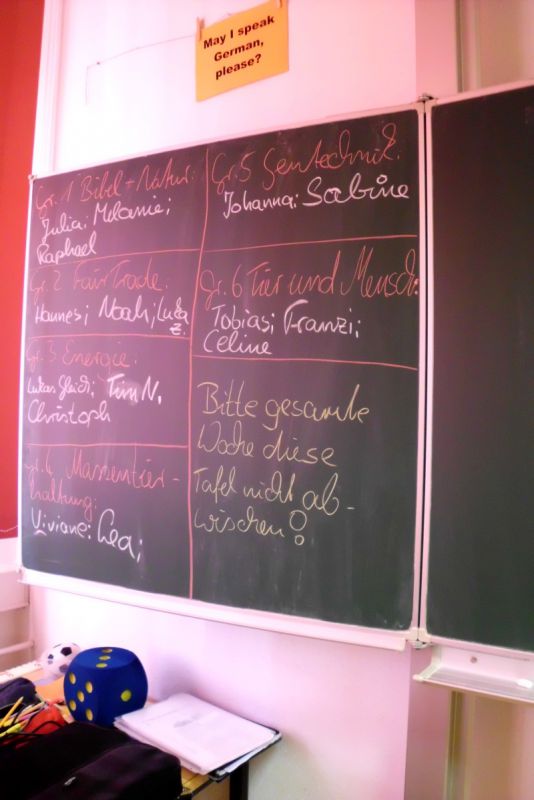 May I speak
German,
please?
Gr. 1 Bibel + Natur:
Julia; Melanie;
Raphael
Gr. 2 Fair Trade:
Hannes; Noah; Luka
Z.
Gr. 3 Energie:
Lukas Gleidi; Tim N,
Christoph
Gr. 4 Massentier-
haltung:
Viviane; Lea;
Gr. 5 Gentechnik:
Johanna; Sabine
Gr. 6 Tier und Mensch:
Tobias; Franzi;
Celine
Bitte gesamte
Woche diese
Tafel nicht ab-
wischen!